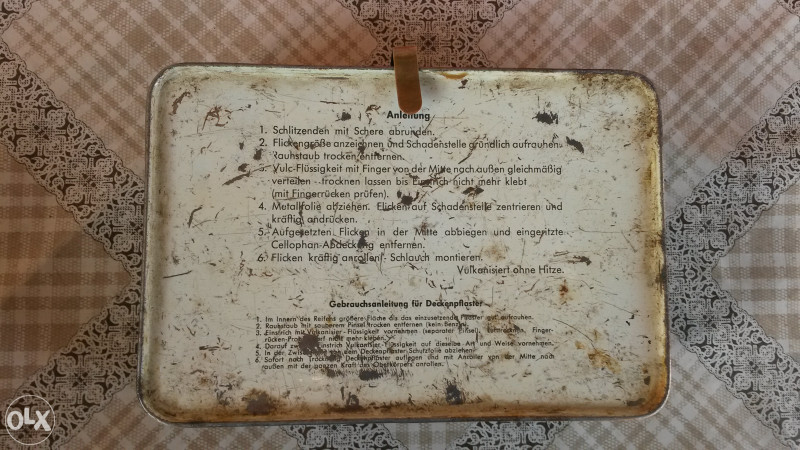 Anleitung
1. Schlitzenden mit Schere abrunden.
2. Flickengröße anzeichnen und Schadenstelle gründlich aufrauhen.
Rauhstaub trocken entfernen.
3. Vulc-Flüssigkeit mit Finger von der Mitte nach außen gleichmäßig
verteilen - trocknen lassen bis nicht mehr klebt
(mit Fingerrücken prüfen).
4. Metallfolie abziehen. Flicken auf Schadenstelle zentrieren und
kräftig andrücken.
5. Aufgesetzten Flicken in der Mitte abbiegen und eingeritzte
Cellophan-Abdeckung entfernen.
6. Flicken kräftig anrollen - Schlauch montieren.
Vulkanisiert ohne Hitze.
Gebrauchsanleitung für Deckenpflaster
1. Im Innern des Reifens größere Fläche als das einzusetzende Pflaster gut aufrauhen.
2. Rauhstaub mit sauberem Pinsel trocken entfernen (kein Benzin).
3. Einstrich mit Vulkanisier-Flüssigkeit vornehmen (separater Pinsel), Finger-
rücken- nicht mehr kleben.
4. Darauf Einstrich Vulkanisier-Flüssigkeit auf dieselbe Art und Weise vornehmen.
5. In der Deckenpflaster-Schutzfolie abziehen.
6. Sofort nach Trocknung Deckenpflaster auflegen und mit Anroller von der Mitte nach
außen mit der ganzen Kraft des Oberkörpers anrollen.
OLX